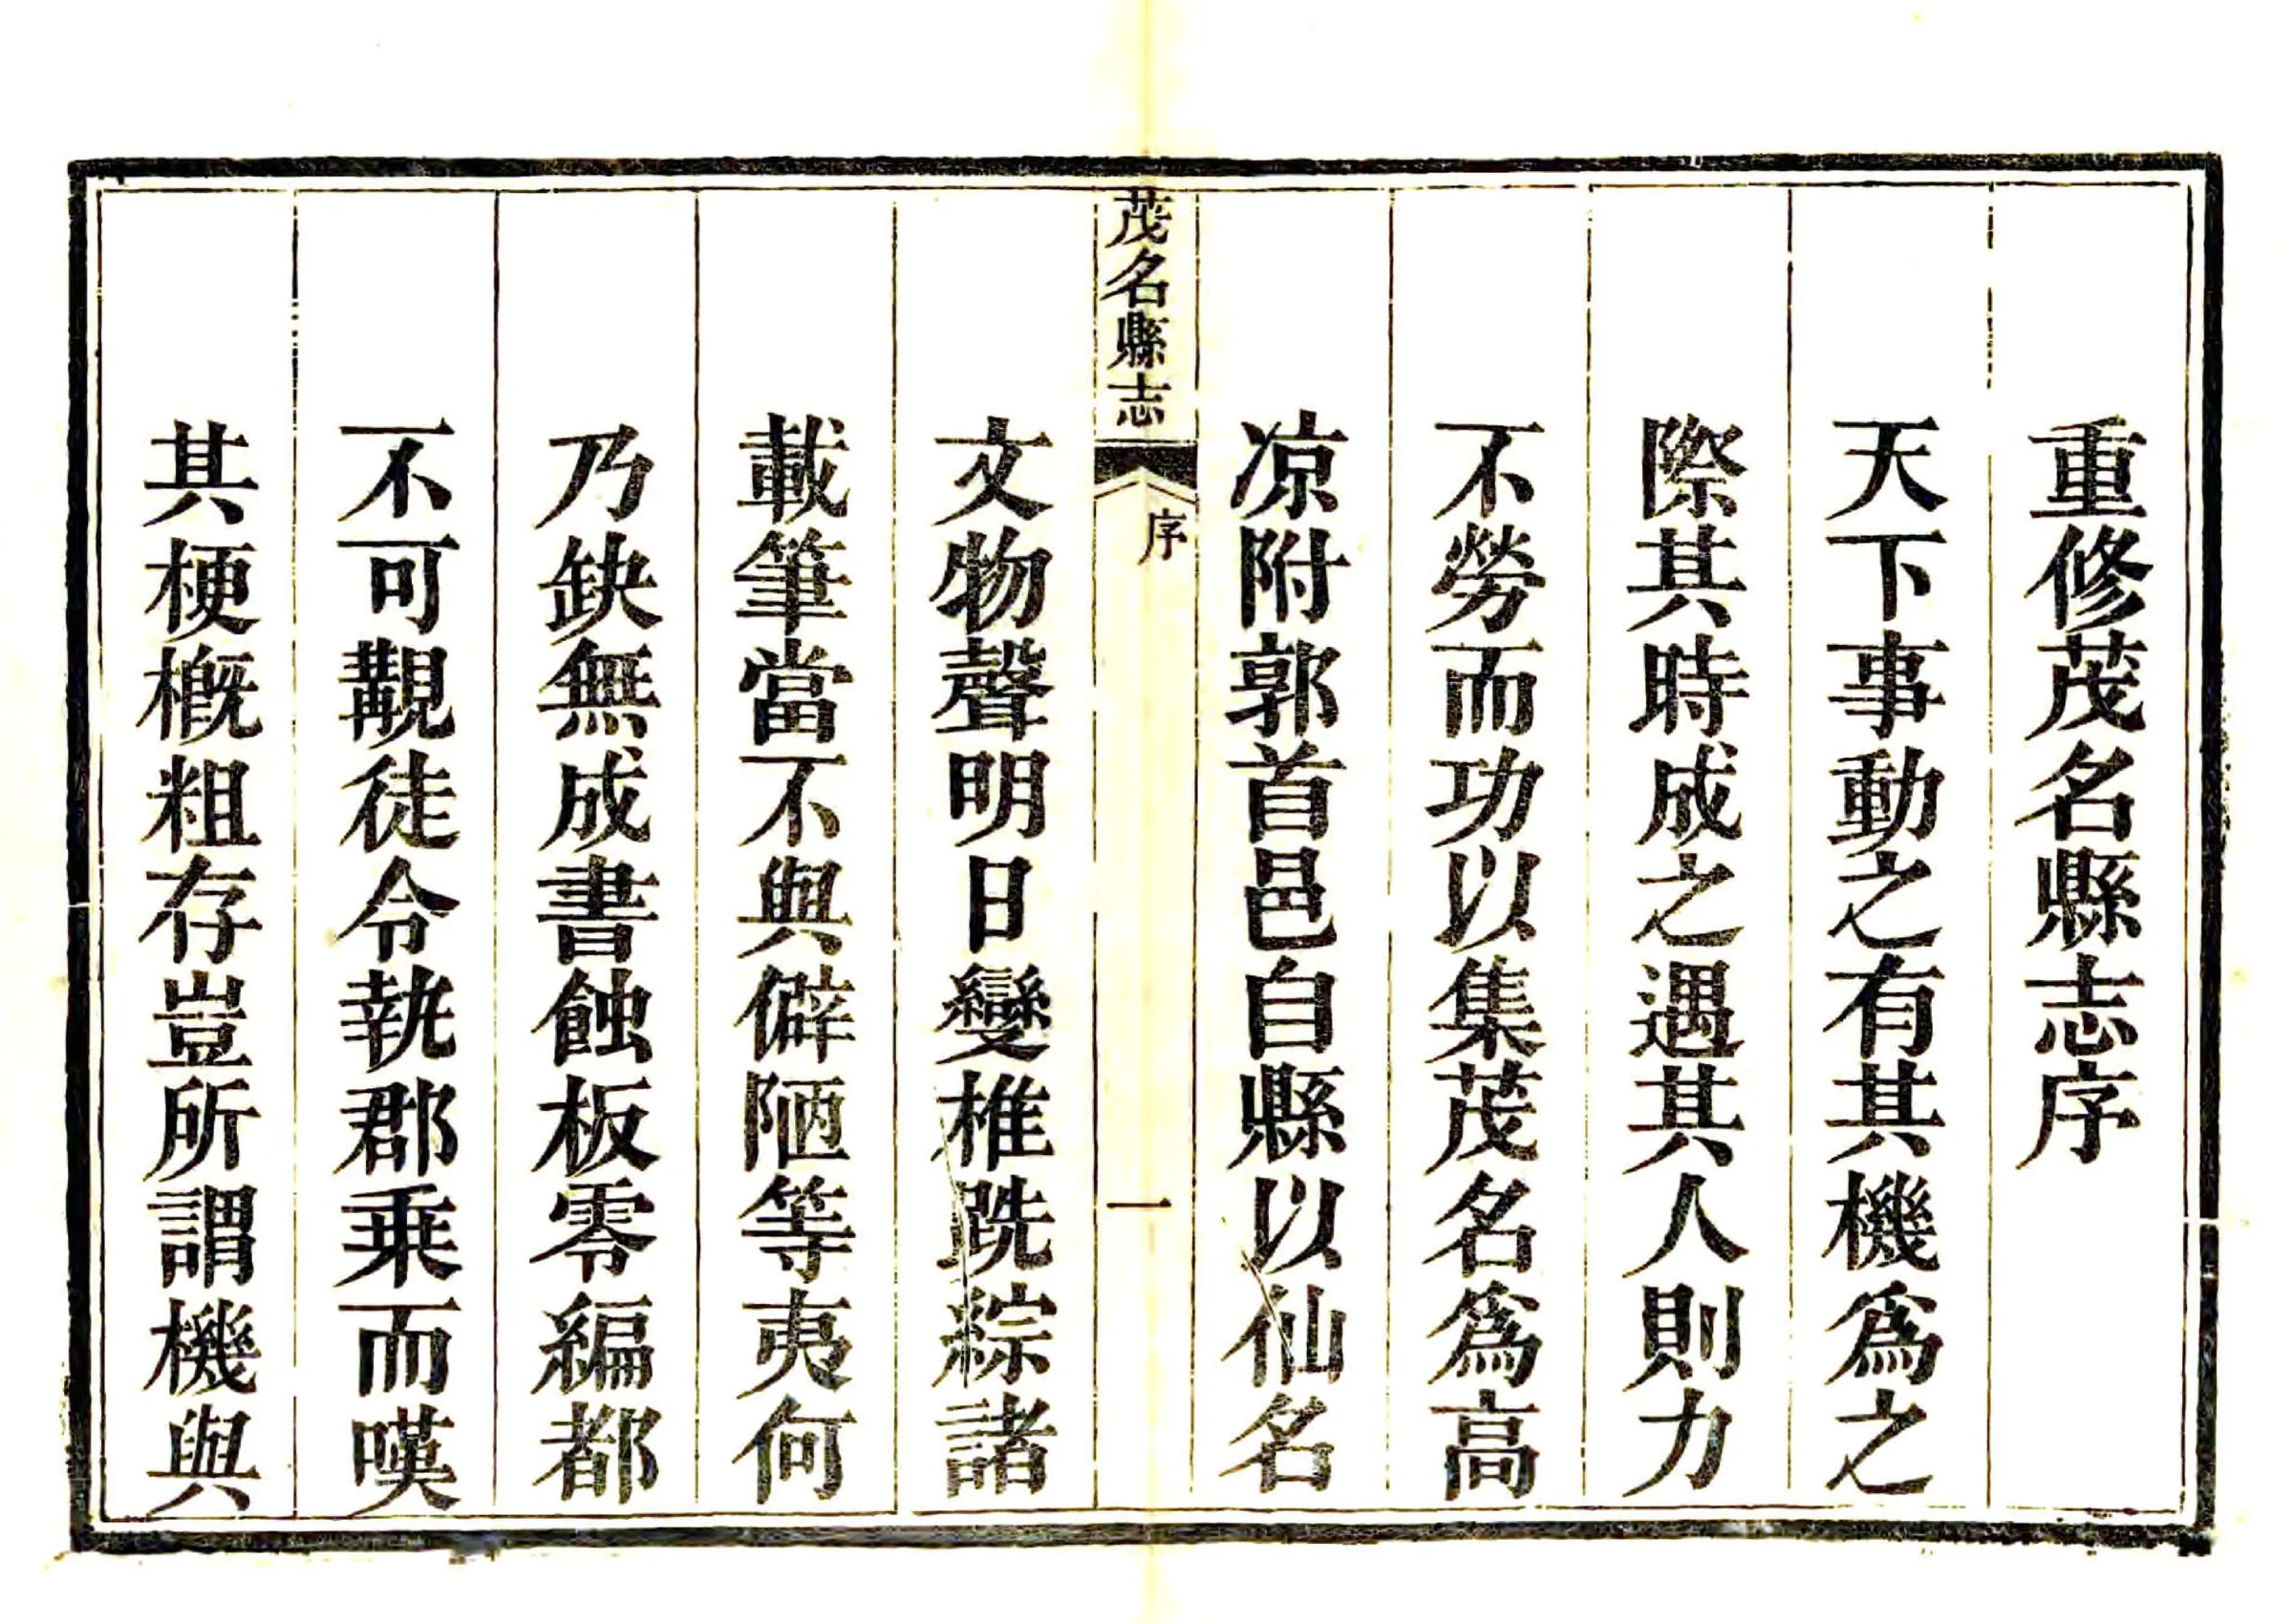 重修茂名縣志序
天下事動之有其機爲之
際其時成之遇其人則力
不勞而功以集茂名爲高
凉附郭首邑自縣以仙名
茂名縣志
序
一
文物聲明日變椎跣綜諸
載筆當不與僻陋等夷何
乃缺無成書蝕板零編都
不可覩徒令執郡乗而嘆
其梗槪粗存豈所謂機與